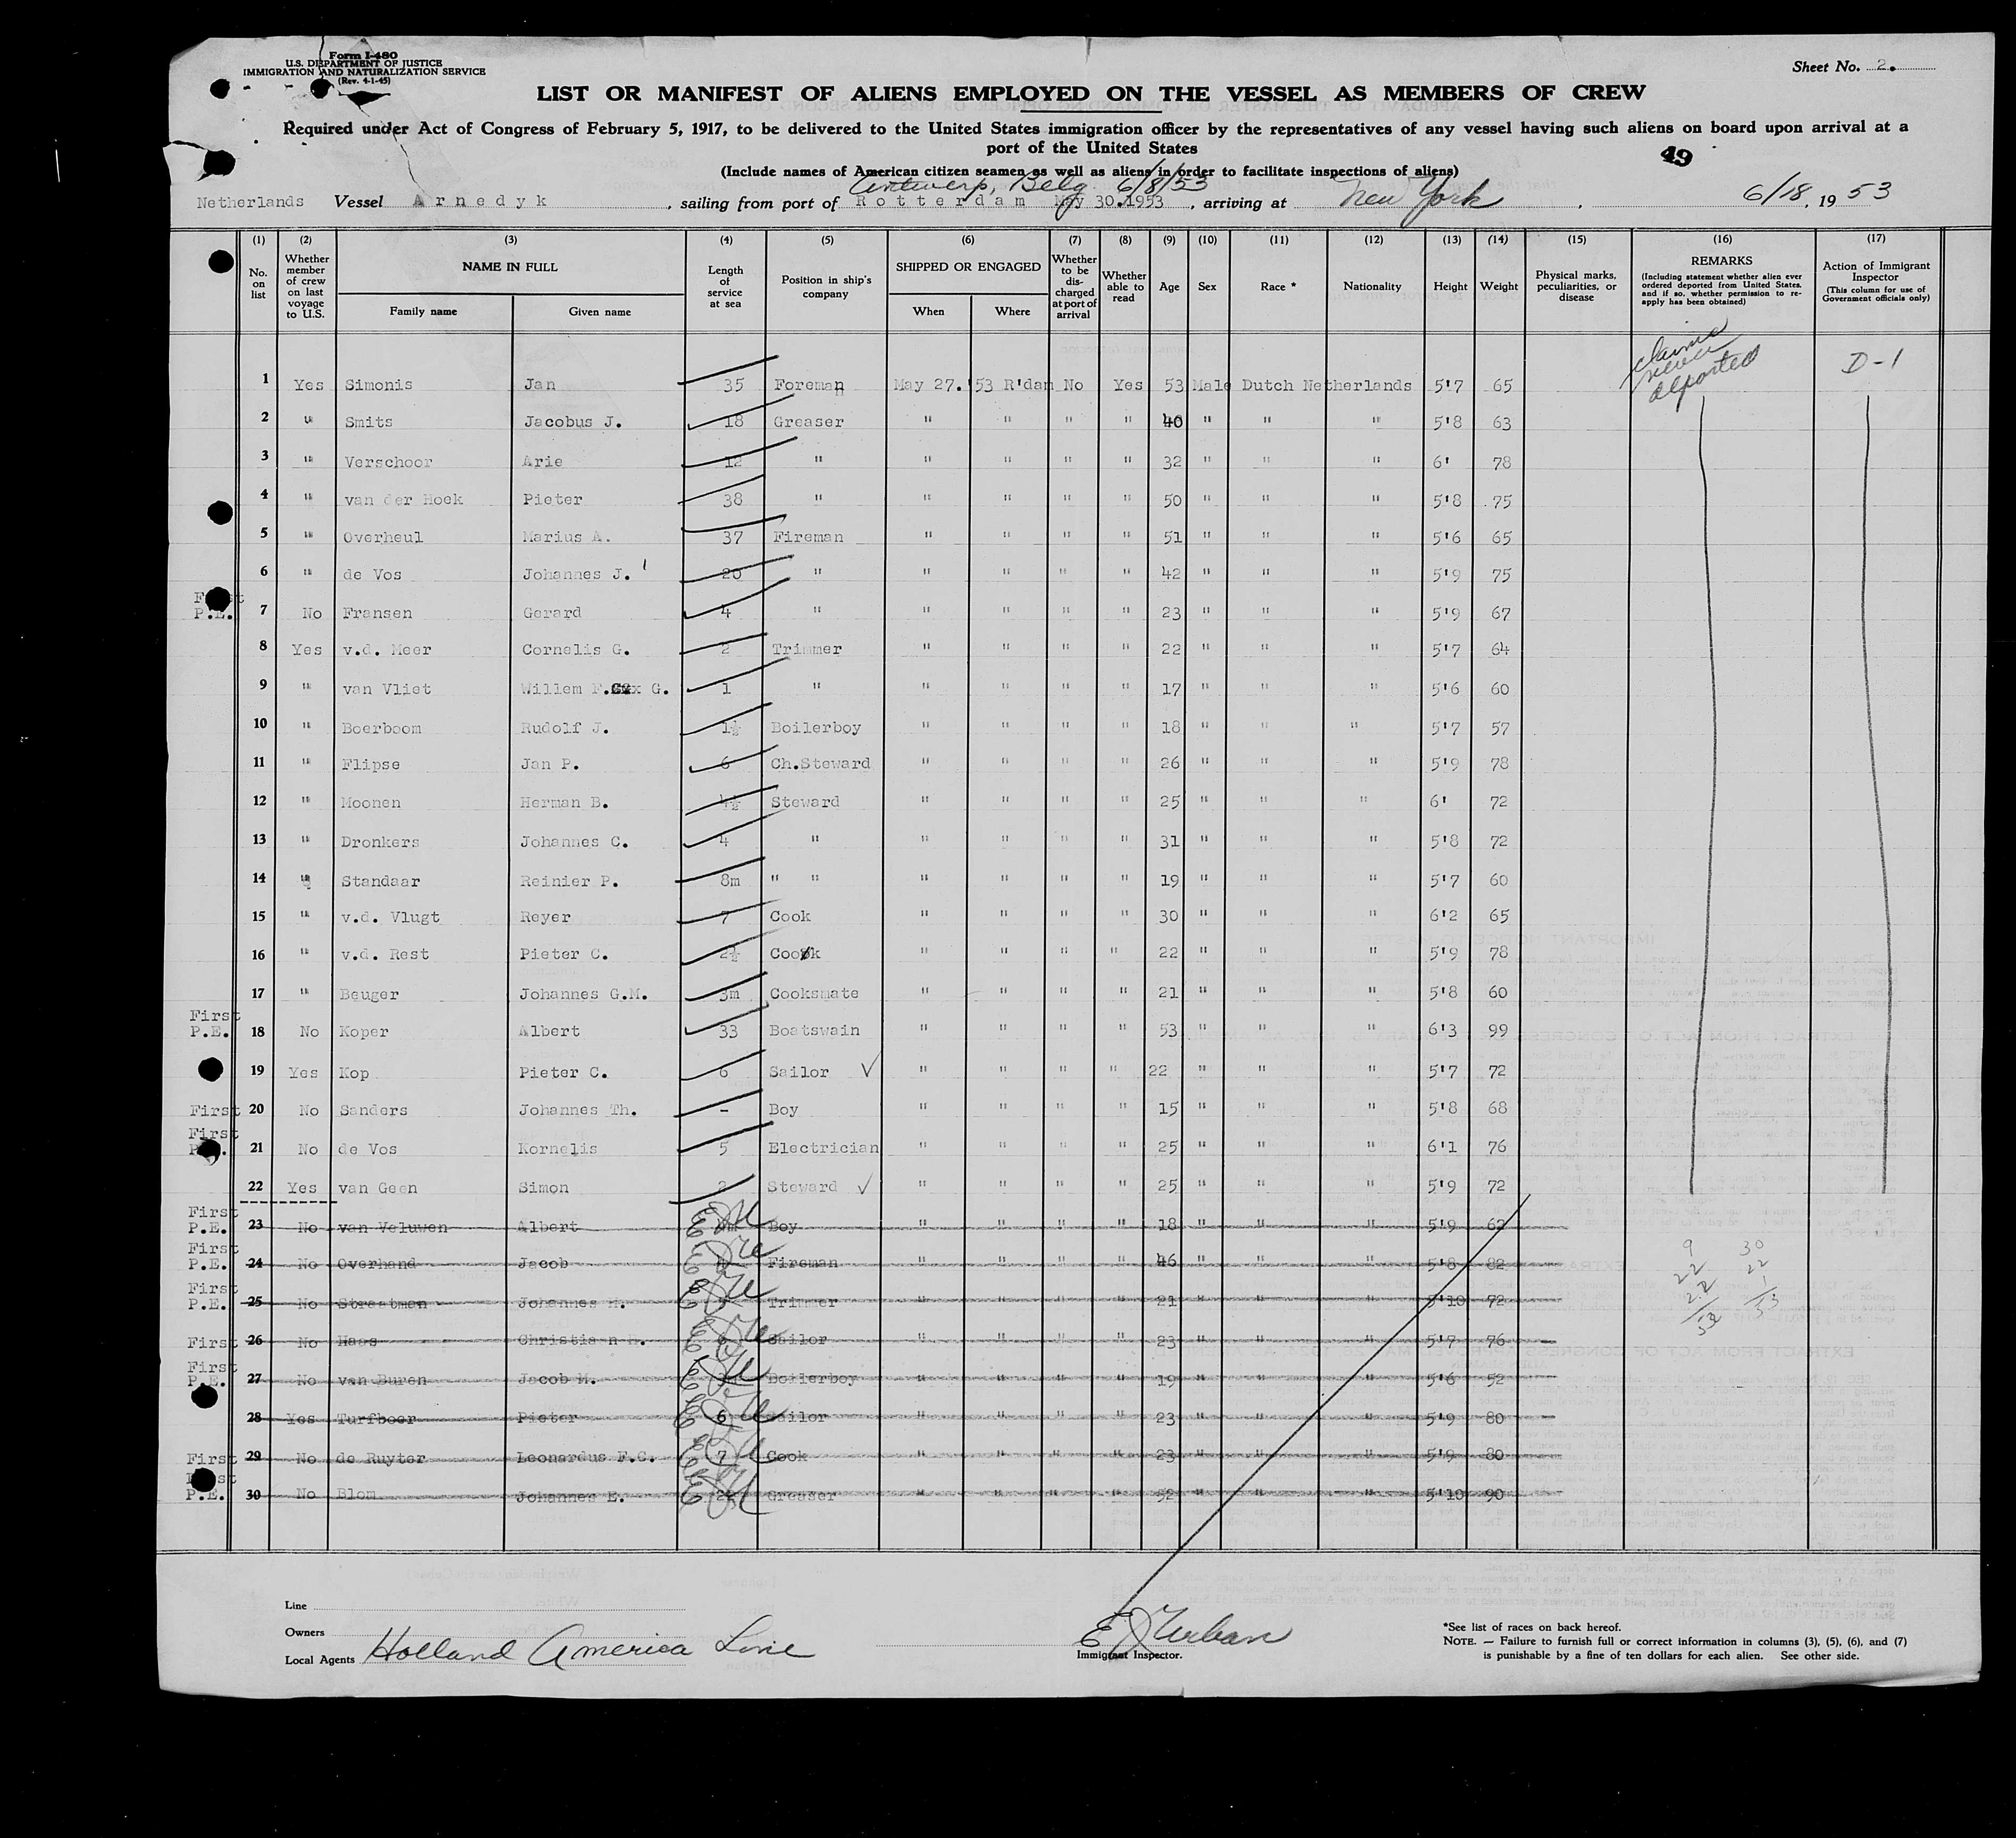 Form I-480
U.S. DEPARTMENT OF JUSTICE
IMMIGRATION AND NATURALIZATION SERVICE
(Rev. 4-1-45)
Sheet No. 2.
LIST OR MANIFEST OF ALIENS EMPLOYED ON THE VESSEL AS MEMBERS OF CREW
Required under Act of Congress of February 5, 1917, to be delivered to the United States immigration officer by the representatives of any vessel having such aliens on board upon arrival at a
port of the United States
49
(Include names of American citizen seamen as well as aliens in order to facilitate inspections of aliens)
Antwerp, Belg 6/8/53
Netherlands Vessel Arnedyk, sailing from port of Rotterdam May 30.1953, arriving at New York, 6/18, 1953
(1) (2) (3) (4) (5) (6) (7) (8) (9) (10) (11) (12) (13) (14) (15) (16) (17)
No. on list
Whether member of crew on last voyage to U.S.
NAME IN FULL
Family name
Given name
Length of service at sea
Position in ship's company
SHIPPED OR ENGAGED
When
Where
Whether to be discharged at port of arrival
Whether able to read
Age
Sex
Race *
Nationality
Height
Weight
Physical marks, peculiarities, or disease
REMARKS
(Including statement whether alien ever ordered deported from United States, and if so, whether permission to re-apply has been obtained)
Action of Immigrant Inspector
(This column for use of Government officials only)
claims never deported
D-1
1 Yes Simonis Jan 35 Foreman May 27.'53 R'dam No Yes 53 Male Dutch Netherlands 5'7 65
2 " Smits Jacobus J. 18 Greaser " " " " 40 " " " 5'8 63
3 " Verschoor Arie 12 " " " " " 32 " " " 6' 78
4 " van der Hoek Pieter 38 " " " " " 50 " " " 5'8 75
5 " Overheul Marius A. 37 Fireman " " " " 51 " " " 5'6 65
6 " de Vos Johannes J. 20 " " " " " 42 " " " 5'9 75
First P.E. 7 No Fransen Gerard 4 " " " " " 23 " " " 5'9 67
8 Yes v.d. Meer Cornelis G. 2 Trimmer " " " " 22 " " " 5'7 64
9 " van Vliet Willem F. G. 1 " " " " " 17 " " " 5'6 60
10 " Boerboom Rudolf J. 1½ Boilerboy " " " " 18 " " " 5'7 57
11 " Flipse Jan P. 6 Ch.Steward " " " " 26 " " " 5'9 78
12 " Moonen Herman B. 4½ Steward " " " " 25 " " " 6' 72
13 " Dronkers Johannes C. 4 " " " " " 31 " " " 5'8 72
14 " Standaar Reinier P. 8m " " " " " " 19 " " " 5'7 60
15 " v.d. Vlugt Reyer 7 Cook " " " " 30 " " " 6'2 65
16 " v.d. Rest Pieter C. 2½ Cook " " " " 22 " " " 5'9 78
17 " Beuger Johannes G.M. 3m Cooksmate " " " " 21 " " " 5'8 60
First P.E. 18 No Koper Albert 33 Boatswain " " " " 53 " " " 6'3 99
19 Yes Kop Pieter C. 6 Sailor " " " " 22 " " " 5'7 72
First 20 No Sanders Johannes Th. - Boy " " " " 15 " " " 5'8 68
First P.E. 21 No de Vos Kornelis 5 Electrician " " " " 25 " " " 6'1 76
22 Yes van Geen Simon 2 Steward " " " " 25 " " " 5'9 72
First P.E. 23 No van Veluwen Albert Boy " " " " 18 " " " 5'9 62
First P.E. 24 No Overhand Jacob Fireman " " " " 46 " " " 5'8 82
First P.E. 25 No Straatman Johannes Trimmer " " " " 21 " " " 5'10 72
First 26 No Haas Christian Sailor " " " " 23 " " " 5'7 76
First P.E. 27 No van Buren Jacob M. Boilerboy " " " " 19 " " " 5'6 52
28 Yes Turfboer Pieter 6 Sailor " " " " 23 " " " 5'9 80
First 29 No de Ruyter Leonardus F.C. 7 Cook " " " " 23 " " " 5'9 80
First P.E. 30 No Blom Johannes E. Greaser " " " " 52 " " " 5'10 90
9 30
22 22
22 1
53 53
Line
Owners
Local Agents Holland America Line
E J Urban
Immigrant Inspector.
*See list of races on back hereof.
NOTE. — Failure to furnish full or correct information in columns (3), (5), (6), and (7)
is punishable by a fine of ten dollars for each alien. See other side.